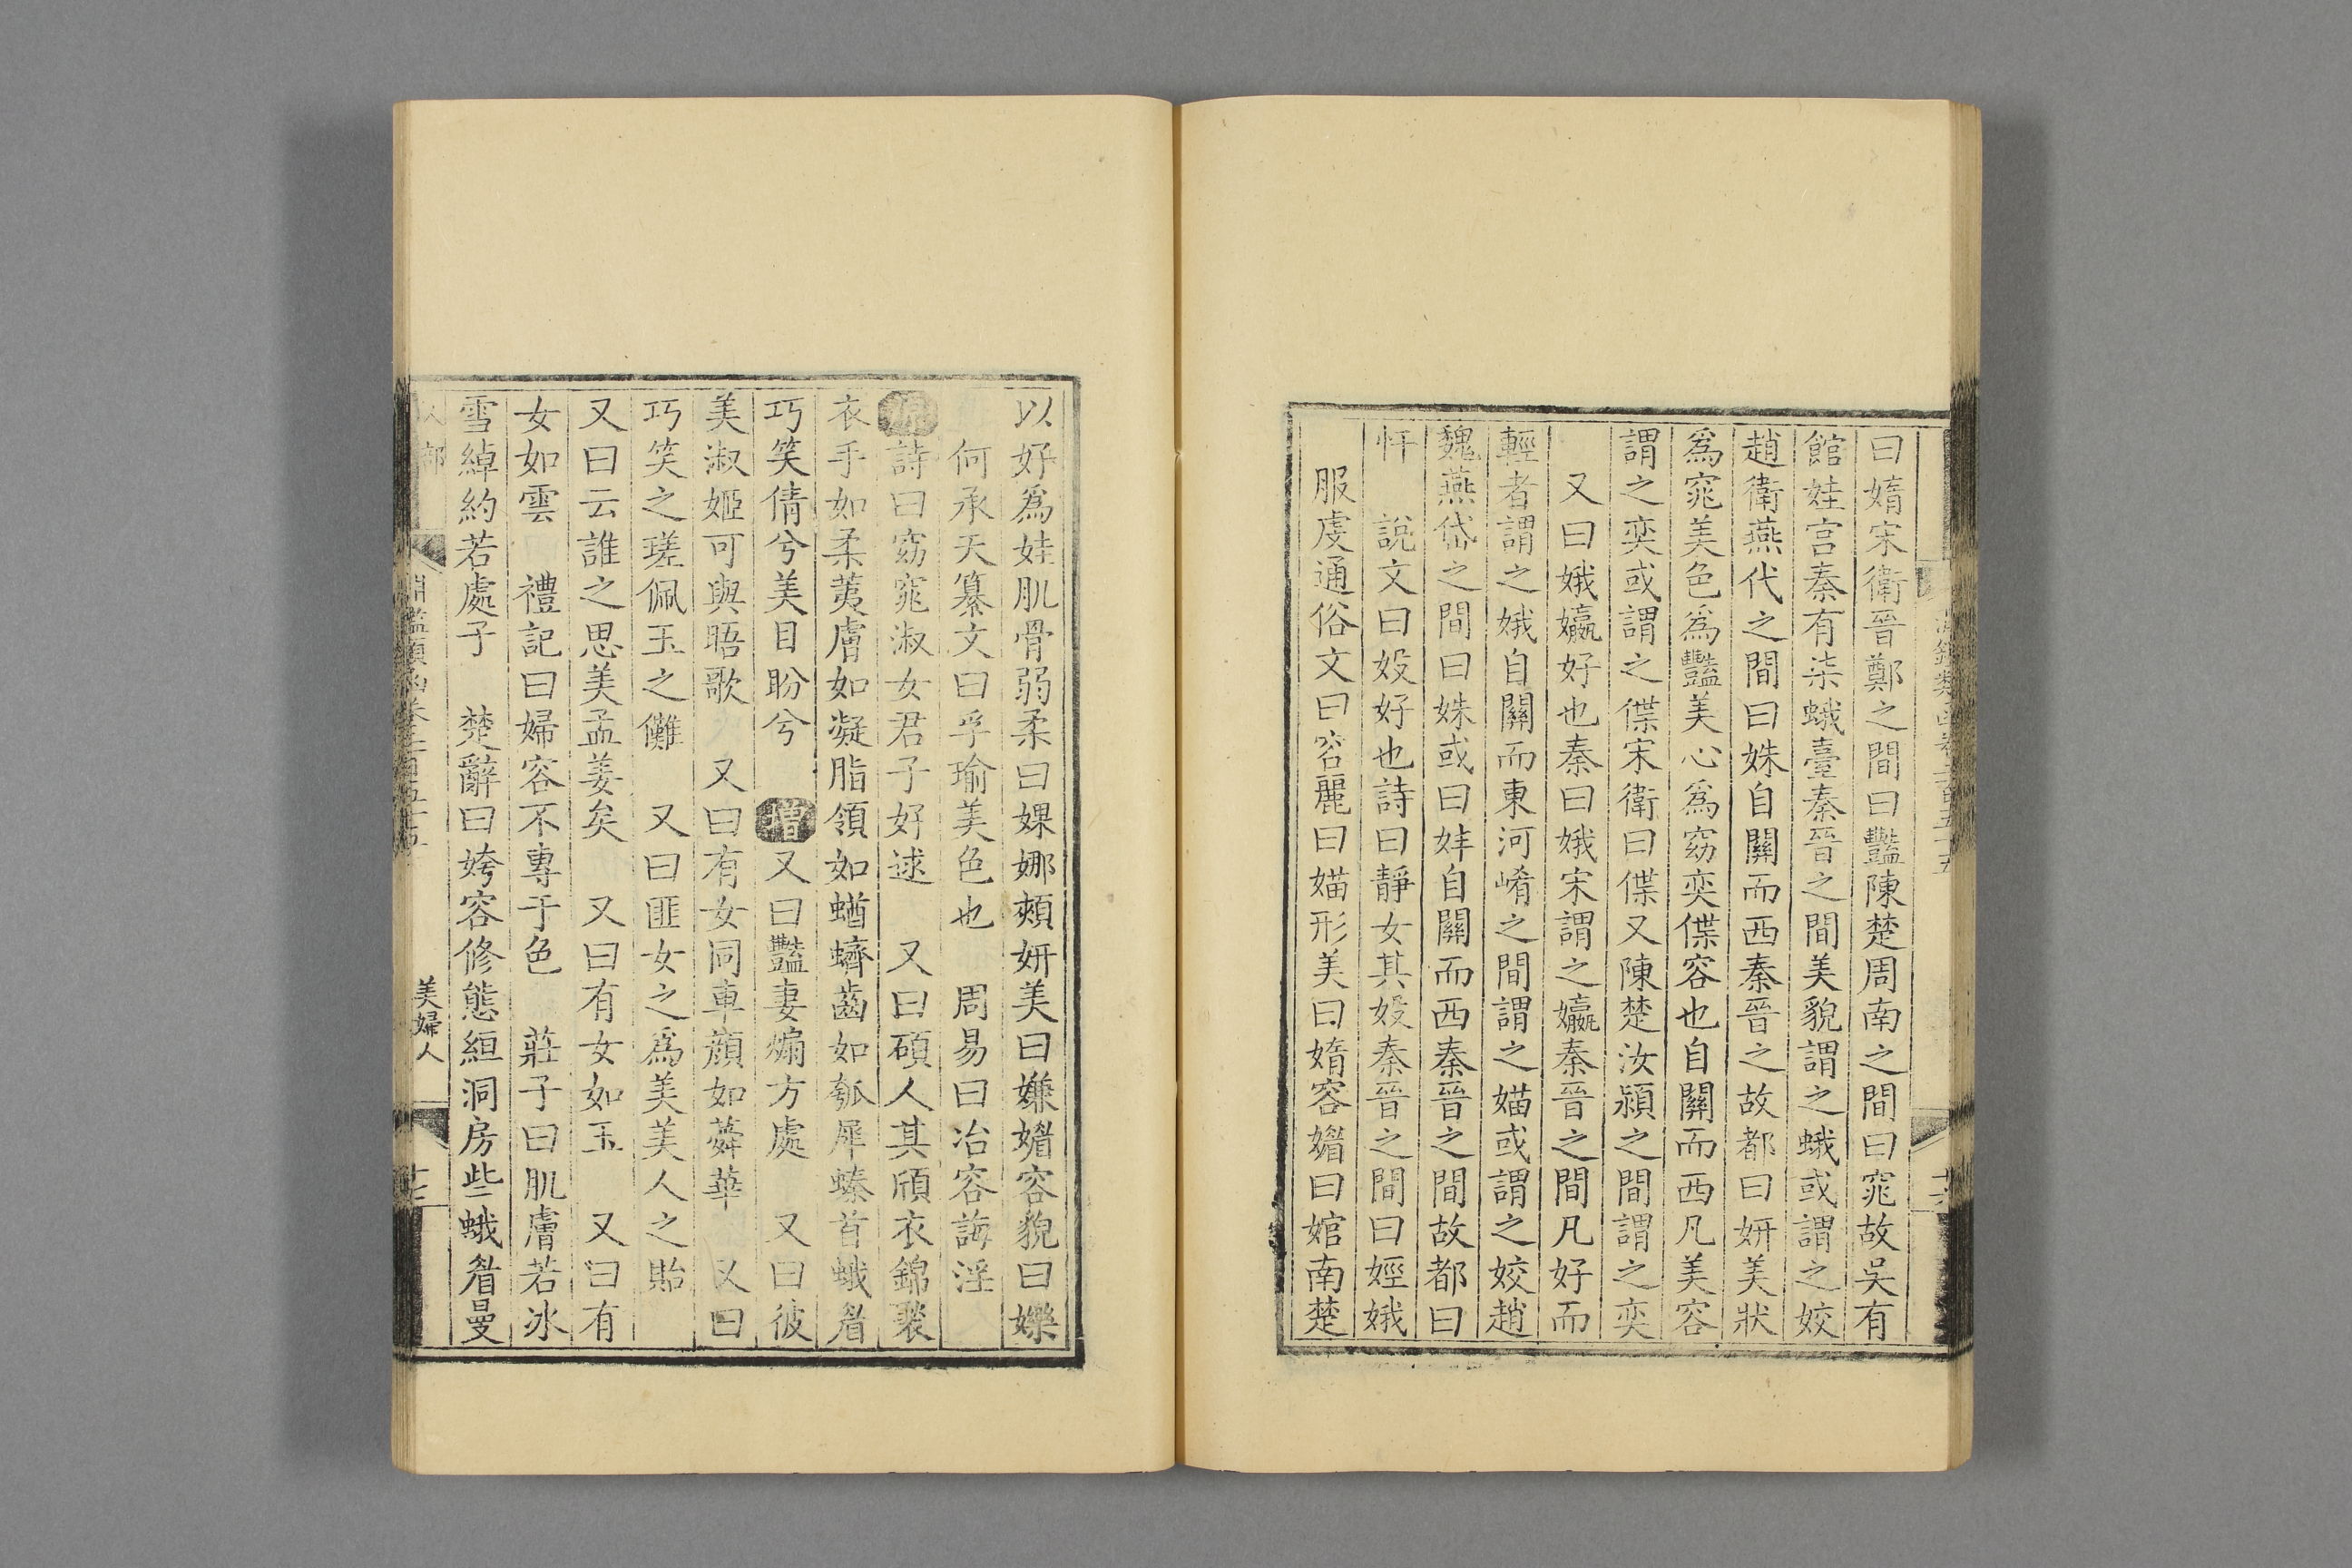 曰媠宋衛晉鄭之間曰豔陳楚周南之間曰窕故吳有
館娃宮秦有㭍蛾臺秦晉之間美貌謂之蛾或謂之姣
趙衛燕代之間曰姝自關而西秦晉之故都曰妍美狀
爲窕美色爲豔美心爲窈奕僷容也自關而西凡美容
謂之奕或謂之僷宋衛曰僷又陳楚汝潁之間謂之奕
又曰娥㜲好也秦曰娥宋謂之㜲秦晉之間凡好而
輕者謂之娥自關而東河崤之間謂之媌或謂之姣趙
魏燕岱之間曰姝或曰妦自關而西秦晉之間故都曰
忓　說文曰㛮好也詩曰靜女其㛮秦晉之間曰娙娥
服虔通俗文曰容麗曰媌形美曰媠容媚曰婠南楚
以好爲娃肌骨弱柔曰婐娜頰妍美曰嫌媚容貌曰嬫
何承天纂文曰孚瑜美色也　周易曰冶容誨淫
源詩曰窈窕淑女君子好逑　又曰碩人其頎衣錦褧
衣手如柔荑膚如凝脂領如蝤蠐齒如瓠犀螓首蛾眉
巧笑倩兮美目盼兮　增又曰豔妻煽方處　又曰彼
美淑姬可與晤歌　又曰有女同車顏如蕣華　又曰
巧笑之瑳佩玉之儺　又曰匪女之爲美美人之貽
又曰云誰之思美孟姜矣　又曰有女如玉　又曰有
女如雲　禮記曰婦容不專于色　莊子曰肌膚若冰
雪綽約若處子　楚辭曰姱容修態絙洞房些蛾眉曼
人部
淵鑑類函卷二百五十五
美婦人
十七